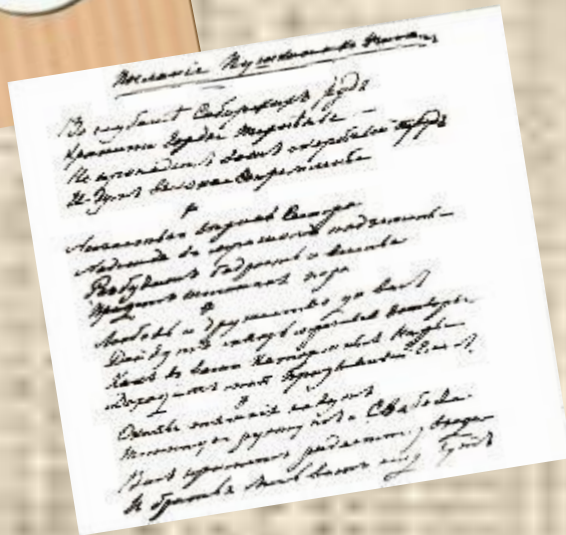 Посланіе Пушкина
Во глубинѣ Сибирскихъ рудъ
Храните гордое терпѣнье
Не пропадетъ вашъ скорбный трудъ
И думъ высокое стремленье
Несчастью вѣрная Сестра
Надежда въ мрачномъ подземельѣ
Разбудитъ бодрость и веселье
Придетъ желанная пора
Любовь и дружество до васъ
Дойдутъ сквозь мрачные затворы
Какъ въ ваши каторжныя норы
Доходитъ мой гласъ
Оковы тяжкія падутъ
Темницы рухнутъ и Свобода
Васъ приметъ радостно у входа
И братья мечъ вамъ